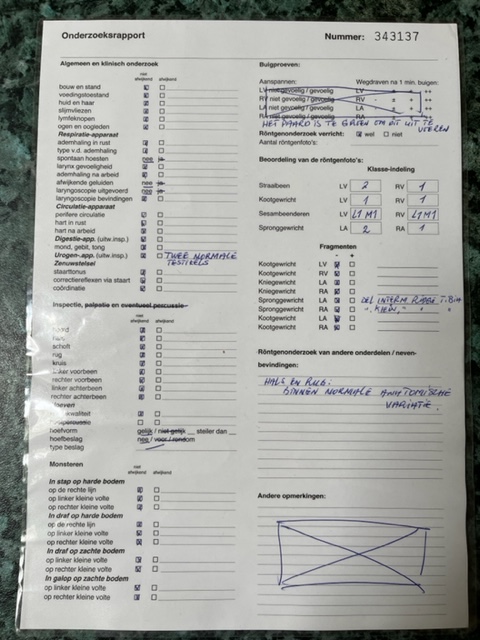 Onderzoeksrapport
Nummer: 343137
Algemeen en klinisch onderzoek
niet afwijkend afwijkend
bouw en stand
voedingstoestand
huid en haar
slijmvliezen
lymfeknopen
ogen en oogleden
Respiratie-apparaat
ademhaling in rust
type v.d. ademhaling
spontaan hoesten nee ja
larynx gevoeligheid
ademhaling na arbeid
afwijkende geluiden nee ja
laryngoscopie uitgevoerd nee ja
laryngoscopie bevindingen
Circulatie-apparaat
perifere circulatie
hart in rust
hart na arbeid
Digestie-app. (uitw.insp.)
mond, gebit, tong
Urogen.-app. (uitw.insp.) TWEE NORMALE
TESTIKELS
Zenuwstelsel
staarttonus
correctiereflexen via staart
coördinatie
Inspectie, palpatie en eventueel percussie
hoofd
hals
schoft
rug
kruis
linker voorbeen
rechter voorbeen
linker achterbeen
rechter achterbeen
hoeven
kwaliteit
hoefvorm gelijk / niet gelijk steiler dan
hoefbeslag nee / voor / rondom
type beslag
Monsteren
niet afwijkend afwijkend
In stap op harde bodem
op de rechte lijn
op linker kleine volte
op rechter kleine volte
In draf op harde bodem
op de rechte lijn
op linker kleine volte
op rechter kleine volte
In draf op zachte bodem
op linker kleine volte
op rechter kleine volte
In galop op zachte bodem
op linker kleine volte
op rechter kleine volte
Buigproeven:
Aanspannen: Wegdraven na 1 min. buigen:
LV niet gevoelig / gevoelig LV - ± + ++
RV niet gevoelig / gevoelig RV - ± + ++
LA niet gevoelig / gevoelig LA - ± + ++
RA niet gevoelig / gevoelig RA - ± + ++
HET PAARD IS TE GROEN OM DIT UIT TE
VOEREN
Röntgenonderzoek verricht: wel niet
Aantal röntgenfoto's:
Beoordeling van de röntgenfoto's:
Klasse-indeling
Straalbeen LV 2 RV 1
Kootgewricht LV 1 RV 1
Sesambeenderen LV L1 M1 RV L1 M1
Spronggewricht LA 2 RA 1
Fragmenten
- +
Kootgewricht LV
Kootgewricht RV
Kniegewricht LA
Kniegewricht RA
Spronggewricht LA DEL INTERM. RIDGE TIBIA
Spronggewricht RA " KLEIN, " "
Kootgewricht LA
Kootgewricht RA
Röntgenonderzoek van andere onderdelen / neven-
bevindingen:
HALS EN RUG:
BINNEN NORMALE ANATOMISCHE
VARIATIE.
Andere opmerkingen: